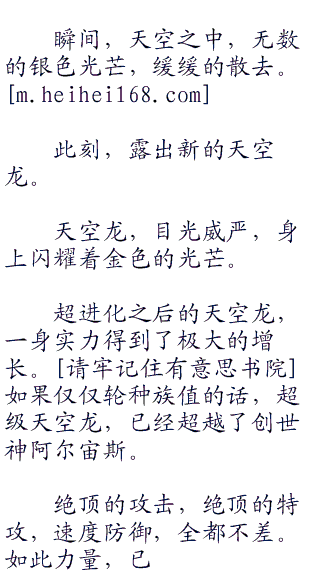 瞬间，天空之中，无数
的银色光芒，缓缓的散去。
[m.heihei168.com]
此刻，露出新的天空
龙。
天空龙，目光威严，身
上闪耀着金色的光芒。
超进化之后的天空龙，
一身实力得到了极大的增
长。[请牢记住有意思书院]
如果仅仅轮种族值的话，超
级天空龙，已经超越了创世
神阿尔宙斯。
绝顶的攻击，绝顶的特
攻，速度防御，全都不差。
如此力量，已